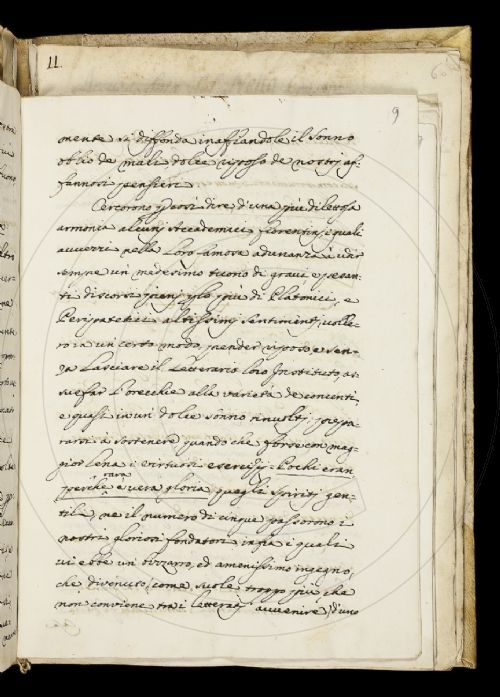 11.
9
mente si diffonda inaffiandole il sonno
oblio de mali dolce riposo de nostri af-
fannosi pensieri
Cercorono però si dire d'una più dilettosa
armonia alcuni Accademici fiorentini, i quali
avvezzi nella Loro famosa adunanza à udir
sempre un medesimo tuono di gravi e pesan-
ti discorsi pieni più di Platonici, e
Peripatetici altissimi sentimenti, volle-
ro in un certo modo, prender riposo, e sen-
za Lasciare il Letterario loro Instituto, as-
suefar l'orecchie alla varietà de concenti,
e quasi in un dolce sonno rinvolti, prepa-
rarsi à sostenere quando che forse con mag-
gior Lena i virtuosi esercizij. Pochi eran
rara
perche è vera gloria quegli spiriti gen-
tili, ne il numero di cinque passorono i
nostri gloriosi fondatori infra i quali
vi ebbe un bizzarro, ed amenissimo ingegno,
che divenuto, come suole troppo più che
non conviene tra i letterati avvenire, d'uno